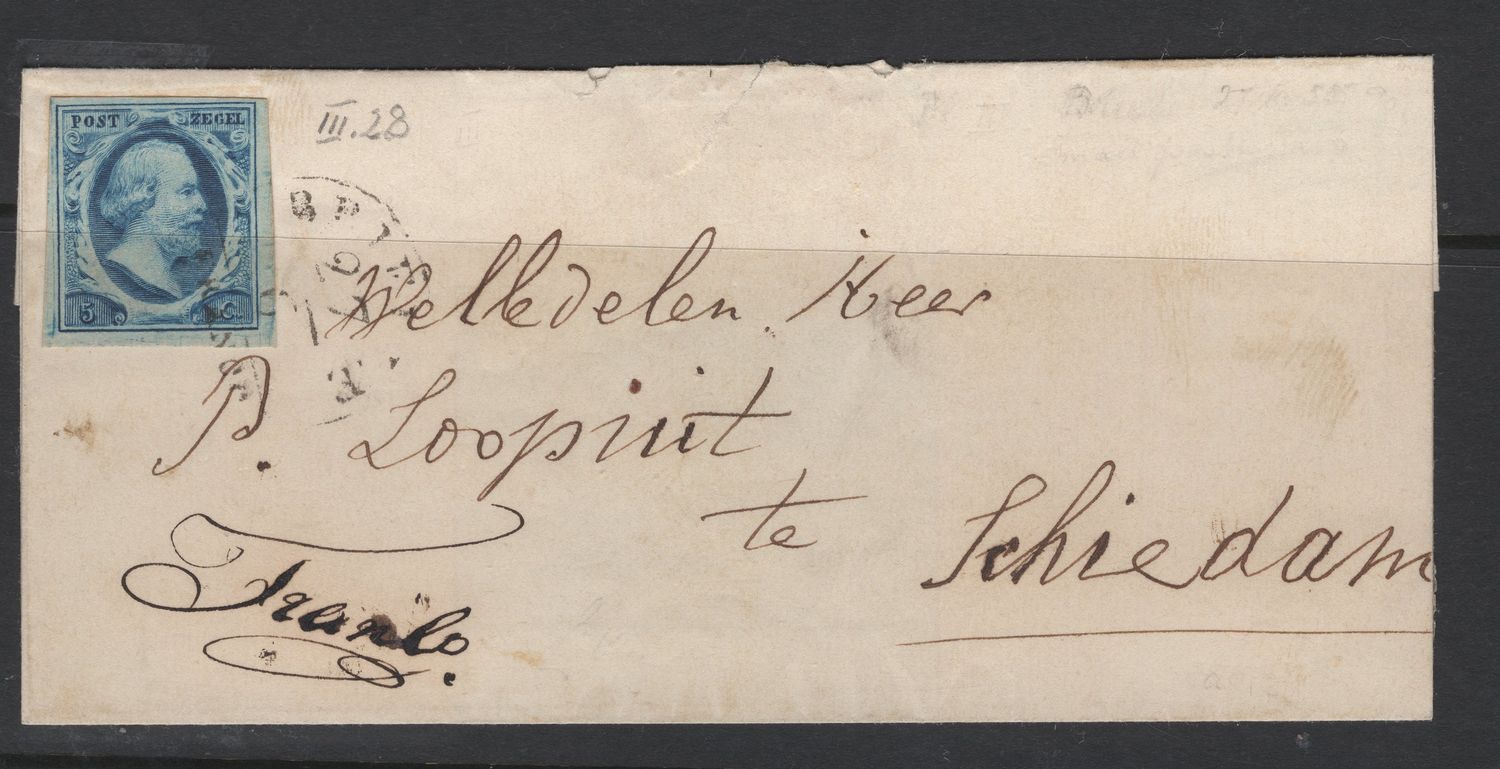 POST ZEGEL
5 C
III.28
WelEdelen Heer
P. Loopuit
te
Schiedam
Franco.